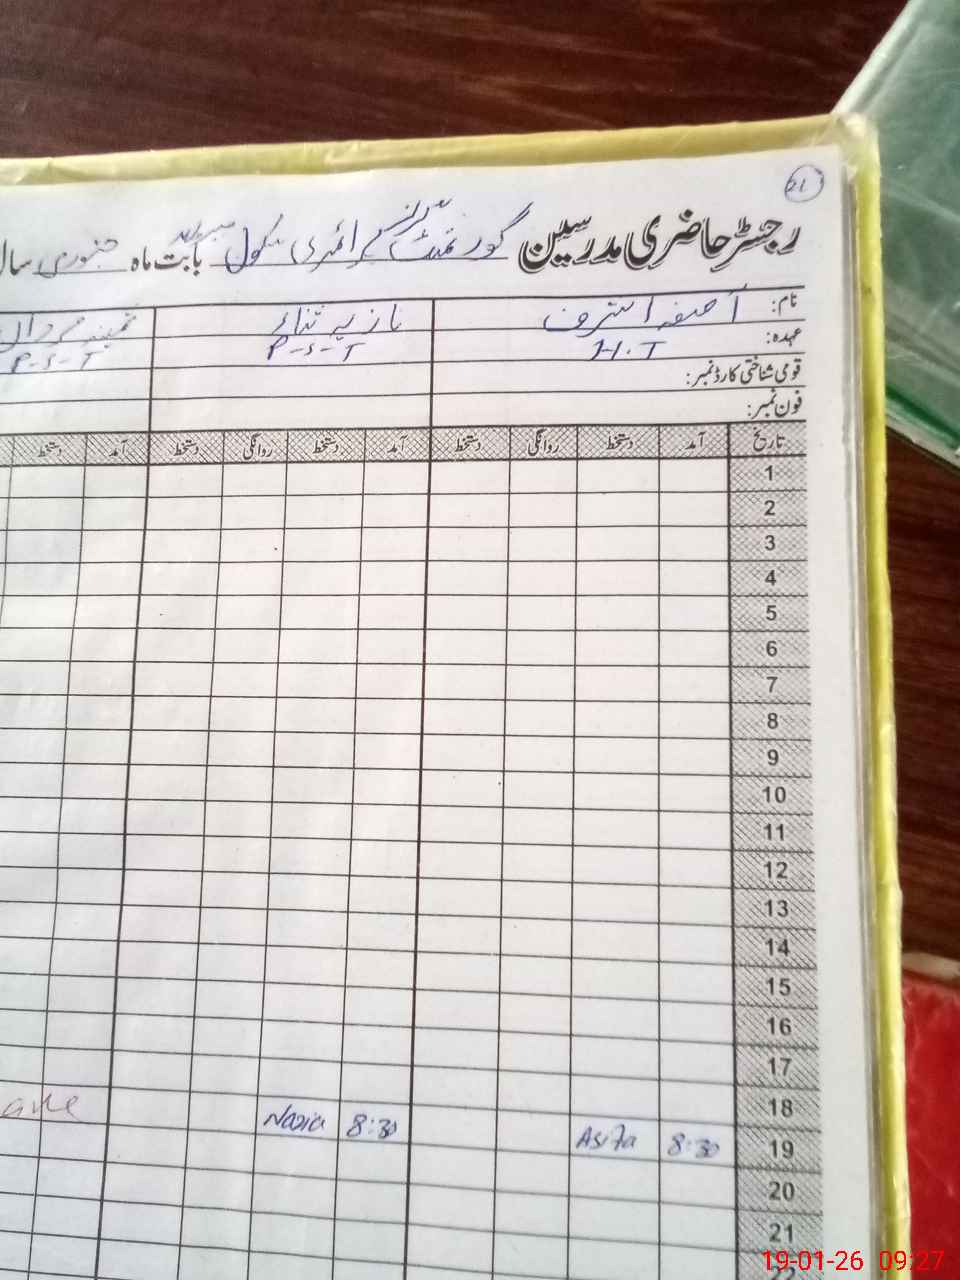 21
رجسٹر حاضری مدرسین گورنمنٹ گرلز پرائمری سکول بابت ماہ جنوری سال
نام: آصفہ اشرف نازیہ ثمینہ
عہدہ: H.T P-S-T P-S-T
قومی شناختی کارڈ نمبر:
فون نمبر:
تاریخ آمد دستخط روانگی دستخط آمد دستخط روانگی دستخط آمد دستخط
1
2
3
4
5
6
7
8
9
10
11
12
13
14
15
16
17
18
19 8:30 Asifa 8:30 Nazia
20
21
22
19-01-26 09:27